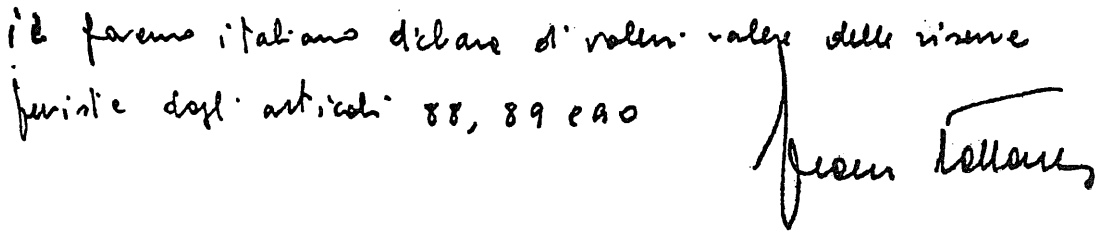 il Governo italiano dichiara di volersi valere delle riserve
previste dagli articoli 88, 89 e 90